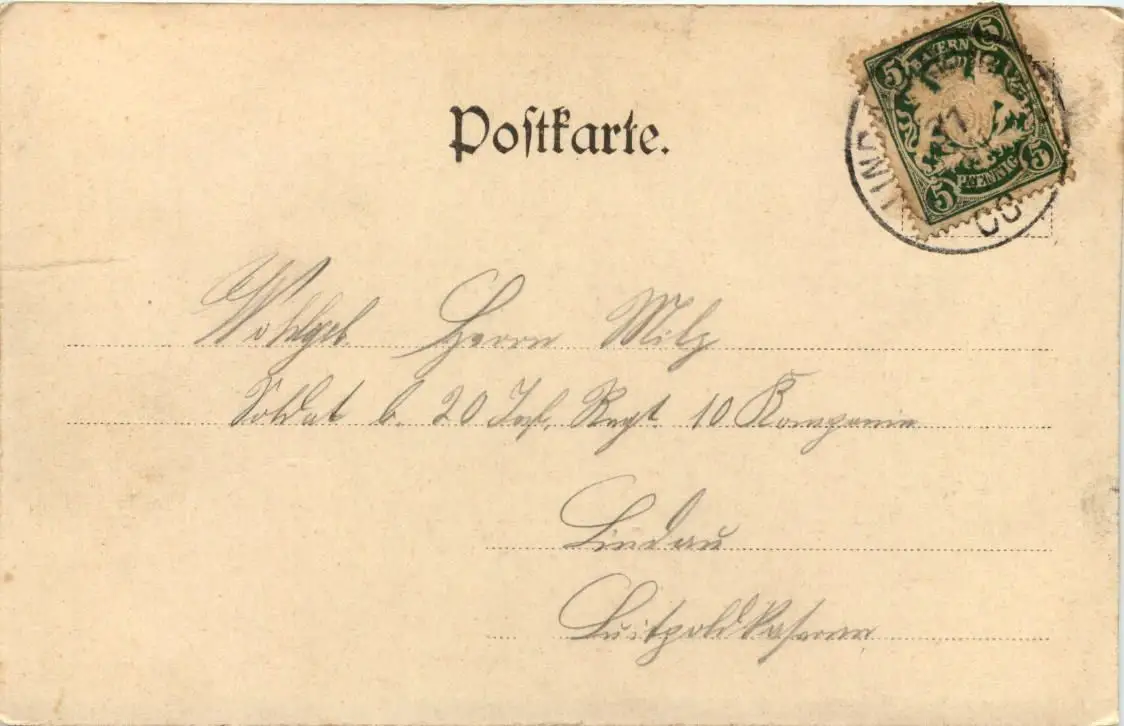 5 BAYERN 5
5 PFENNIG 5
LIND
Postkarte.
Wohlgeb Herrn Milz
Soldat b. 20 Inf. Regt. 10 Kompanie
Lindau
Luitpoldkaserne